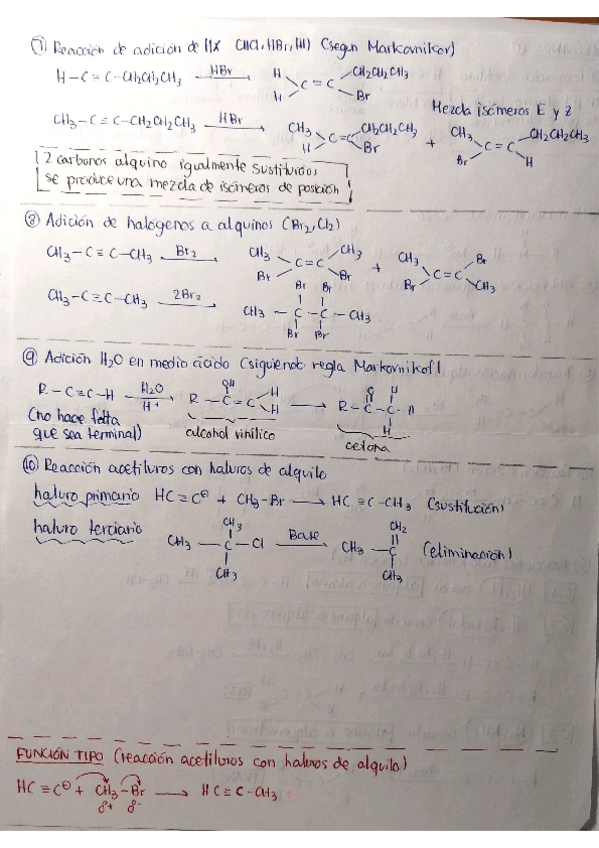 ⑦ Reacción de adición de HX (HCl, HBr, HI) (segun Markovnikov)
H-C≡C-CH2CH2CH3 HBr H H C=C CH2CH2CH3 Br
Mezcla isómeros E y Z
CH3-C≡C-CH2CH2CH3 HBr CH3 H C=C CH2CH2CH3 Br + CH3 Br C=C CH2CH2CH3 H
2 carbonos alquino igualmente sustituidos
se produce una mezcla de isómeros de posición
⑧ Adición de halógenos a alquinos (Br2, Cl2)
CH3-C≡C-CH3 Br2 CH3 Br C=C CH3 Br + CH3 Br C=C Br CH3
CH3-C≡C-CH3 2Br2 CH3-C-C-CH3 Br Br Br Br
⑨ Adición H2O en medio ácido (siguiendo regla Markovnikof)
R-C≡C-H H2O H+ R-C=C OH H H → R-C-C-H O H H
(no hace falta
que sea terminal) alcohol vinílico cetona
⑩ Reacción acetiluros con haluros de alquilo
haluro primario HC≡C⊖ + CH3-Br → HC≡C-CH3 (sustitución)
haluro terciario CH3-C-Cl CH3 CH3 Base CH3-C CH2 CH3 (eliminación)
FUNCIÓN TIPO (reacción acetiluros con haluros de alquilo)
HC≡C⊖ + CH3-Br → HC≡C-CH3
δ+ δ-